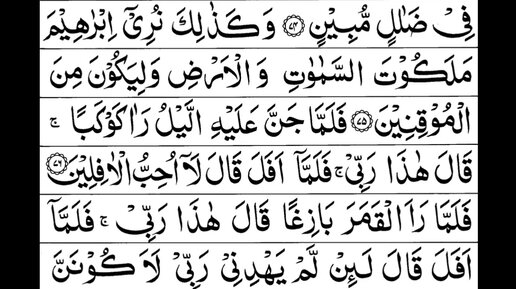 فِىْ ضَلٰلٍ مُّبِيْنٍ ﴿۷۴﴾ وَكَذٰلِكَ نُرِىْٓ اِبْرٰهِيْمَ
مَلَكُوْتَ السَّمٰوٰتِ وَالْاَرْضِ وَلِيَكُوْنَ مِنَ
الْمُوْقِنِيْنَ ﴿۷۵﴾ فَلَمَّا جَنَّ عَلَيْهِ الَّيْلُ رَاٰ كَوْكَبًا ۚ
قَالَ هٰذَا رَبِّىْ ۚ فَلَمَّاۤ اَفَلَ قَالَ لَاۤ اُحِبُّ الْاٰفِلِيْنَ ﴿۷۶﴾
فَلَمَّا رَاَ الْقَمَرَ بَازِغًا قَالَ هٰذَا رَبِّىْ ۚ فَلَمَّاۤ
اَفَلَ قَالَ لَئِنْ لَّمْ يَهْدِنِىْ رَبِّىْ لَاَكُوْنَنَّ